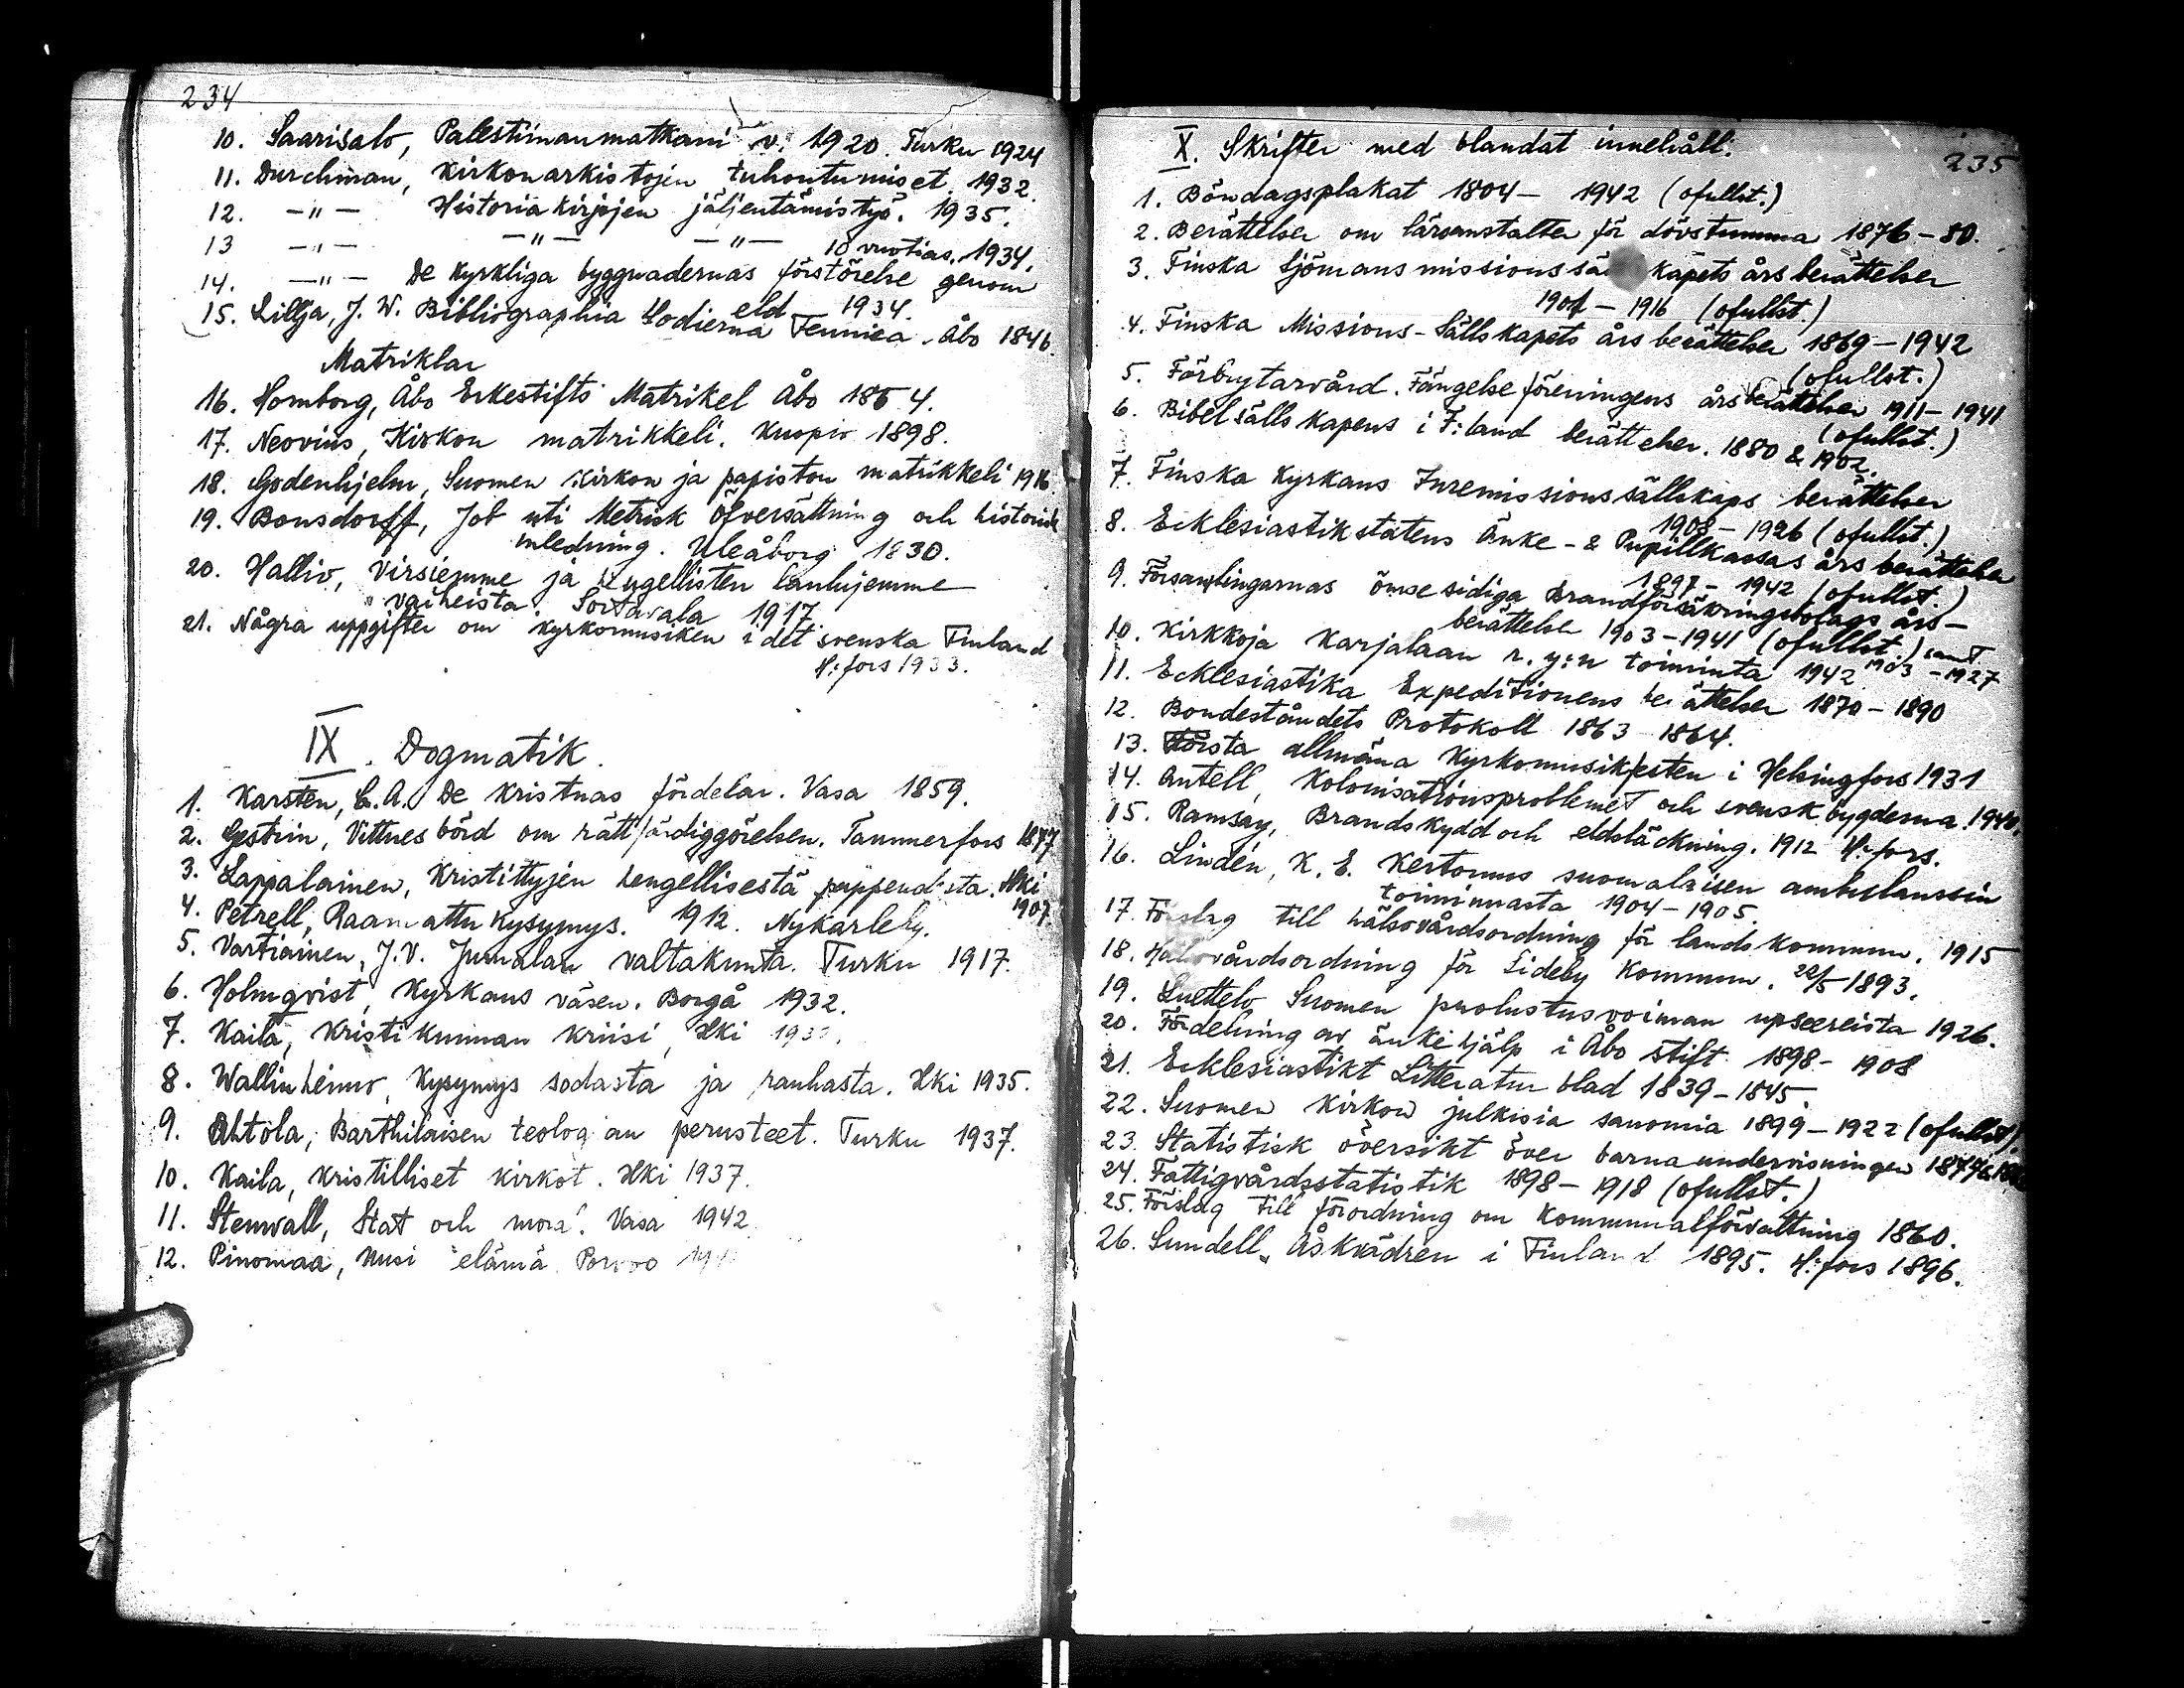 234
10. Saarisalo, Palestiinanmatkani v. 1920. Turku 1924
11. Durchman, Kirkonarkistojen tuhoutumiset. 1932.
12. -"- Historiakirjojen jäljentämistyö. 1935.
13 -"- -"- -"- 10 vuotias, 1934.
14. -"- De kyrkliga byggnadernas förstörelse genom
eld 1934.
15. Lillja, J. W. Bibliographia Hodierna Fennica. Åbo 1846.
Matriklar
16. Homborg, Åbo Erkestifts Matrikel Åbo 1854.
17. Neovius, Kirkon matrikkeli. Kuopio 1898.
18. Godenhjelm, Suomen Kirkon ja papiston matrikkeli 1916.
19. Bonsdorff, Job uti Metrisk Öfversättning och historisk
inledning. Uleåborg 1830.
20. Hallio, Virsiemme ja hengellisten laulujemme
vaiheista. Sortavala 1917.
21. Några uppgifter om kyrkomusiken i det svenska Finland
H:fors 1933.
IX. Dogmatik.
1. Karsten, C.A. De Kristnas fördelar. Vasa 1859.
2. Gestrin, Vittnesbörd om rättfärdiggörelsen. Tammerfors 1877
3. Lappalainen, Kristittyjen hengellisestä pappeudesta. Hki
1907.
4. Petrell, Raamattukysymys. 1912. Nykarleby.
5. Vartiainen, J.V. Jumalan valtakunta. Turku 1917.
6. Holmqvist, Kyrkans väsen. Borgå 1932.
7. Kaila, Kristikunnan kriisi, Hki
8. Wallinheimo, Kysymys sodasta ja rauhasta. Hki 1935.
9. Ahtola, Barthilaisen teologian perusteet. Turku 1937.
10. Kaila, Kristilliset kirkot. Hki 1937.
11. Stenwall, Stat och moral. Vasa 1942.
12. Pinomaa, Uusi elämä Porvoo
235
X. Skrifter med blandat innehåll.
1. Böndagsplakat 1804- 1942 (ofullst.)
2. Berättelser om läroanstalter för dövstumma 1876-80.
3. Finska Sjömansmissionssällskapets årsberättelser
1901-1916 (ofullst.)
4. Finska Missions-Sällskapets årsberättelser 1869-1942
(ofullst.)
5. Förbrytarvård. Fängelseföreningens årsberättelser 1911-1941
(ofullst.)
6. Bibelsällskapens i F:land berättelser. 1880 & 1902.
7. Finska Kyrkans Inremissionssällskaps berättelser
1908-1926 (ofullst.)
8. Ecklesiastikstatens Änke- & Pupillkassas årsberättelser
1897-1942 (ofullst.)
9. Församlingarnas ömsesidiga Brandförsäkringsbolags års-
berättelser 1903-1941 (ofullst.) samt
1903-1927
10. Kirkkoja Karjalaan r.y:n toiminta 1942
11. Ecklesiastika Expeditionens berättelser 1870-1890
12. Bondeståndets Protokoll 1863-1864.
13. Första allmäna Kyrkomusikfesten i Helsingfors 1931
14. Antell, Kolonisationsproblemet och svenskbygderna. 1940.
15. Ramsay, Brandskydd och eldsläckning. 1912 H:fors.
16. Lindén, K. E. Kertomus suomalaisen ambulanssin
toiminnasta 1904-1905.
17. Förslag till hälsovårdsordning för landskommun. 1915
18. Hälsovårdsordning för Sideby Kommun. 22/5 1893.
19. Luettelo Suomen puolustusvoiman upseereista 1926.
20. Fördelning av änkehjälp i Åbo stift 1898-1908
21. Ecklesiastikt Litteraturblad 1839-1845.
22. Suomen Kirkon julkisia sanomia 1899-1922 (ofullst).
23. Statistisk översikt över barnaundervisningen 1874 &
24. Fattigvårdsstatistik 1898-1918 (ofullst.)
25. Förslag till förordning om Kommunalförvaltning 1860.
26. Sundell, Åskvädren i Finland 1895. H:fors 1896.